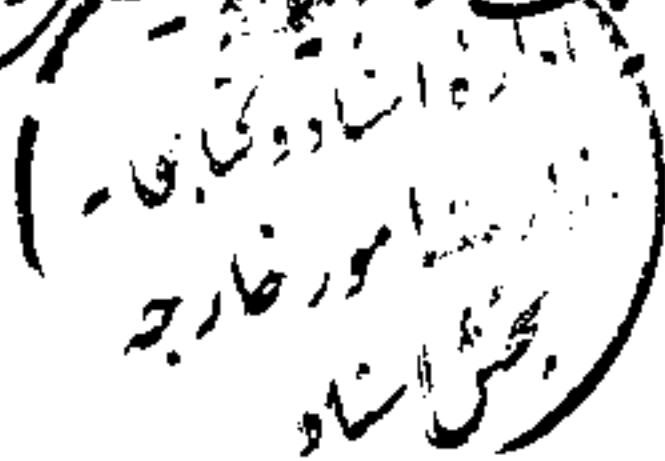 اداره اسناد و کتابخا
وزارت امور خارجه
بخش اسناد